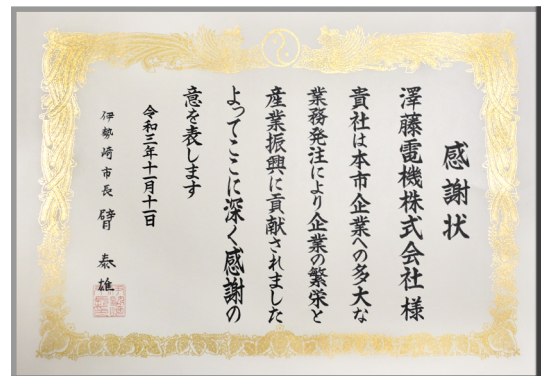 感謝状
澤藤電機株式会社 様
貴社は本市企業への多大な
業務発注により企業の繁栄と
産業振興に貢献されました
よってここに深く感謝の
意を表します
令和三年十一月十一日
伊勢崎市長 臂 泰雄